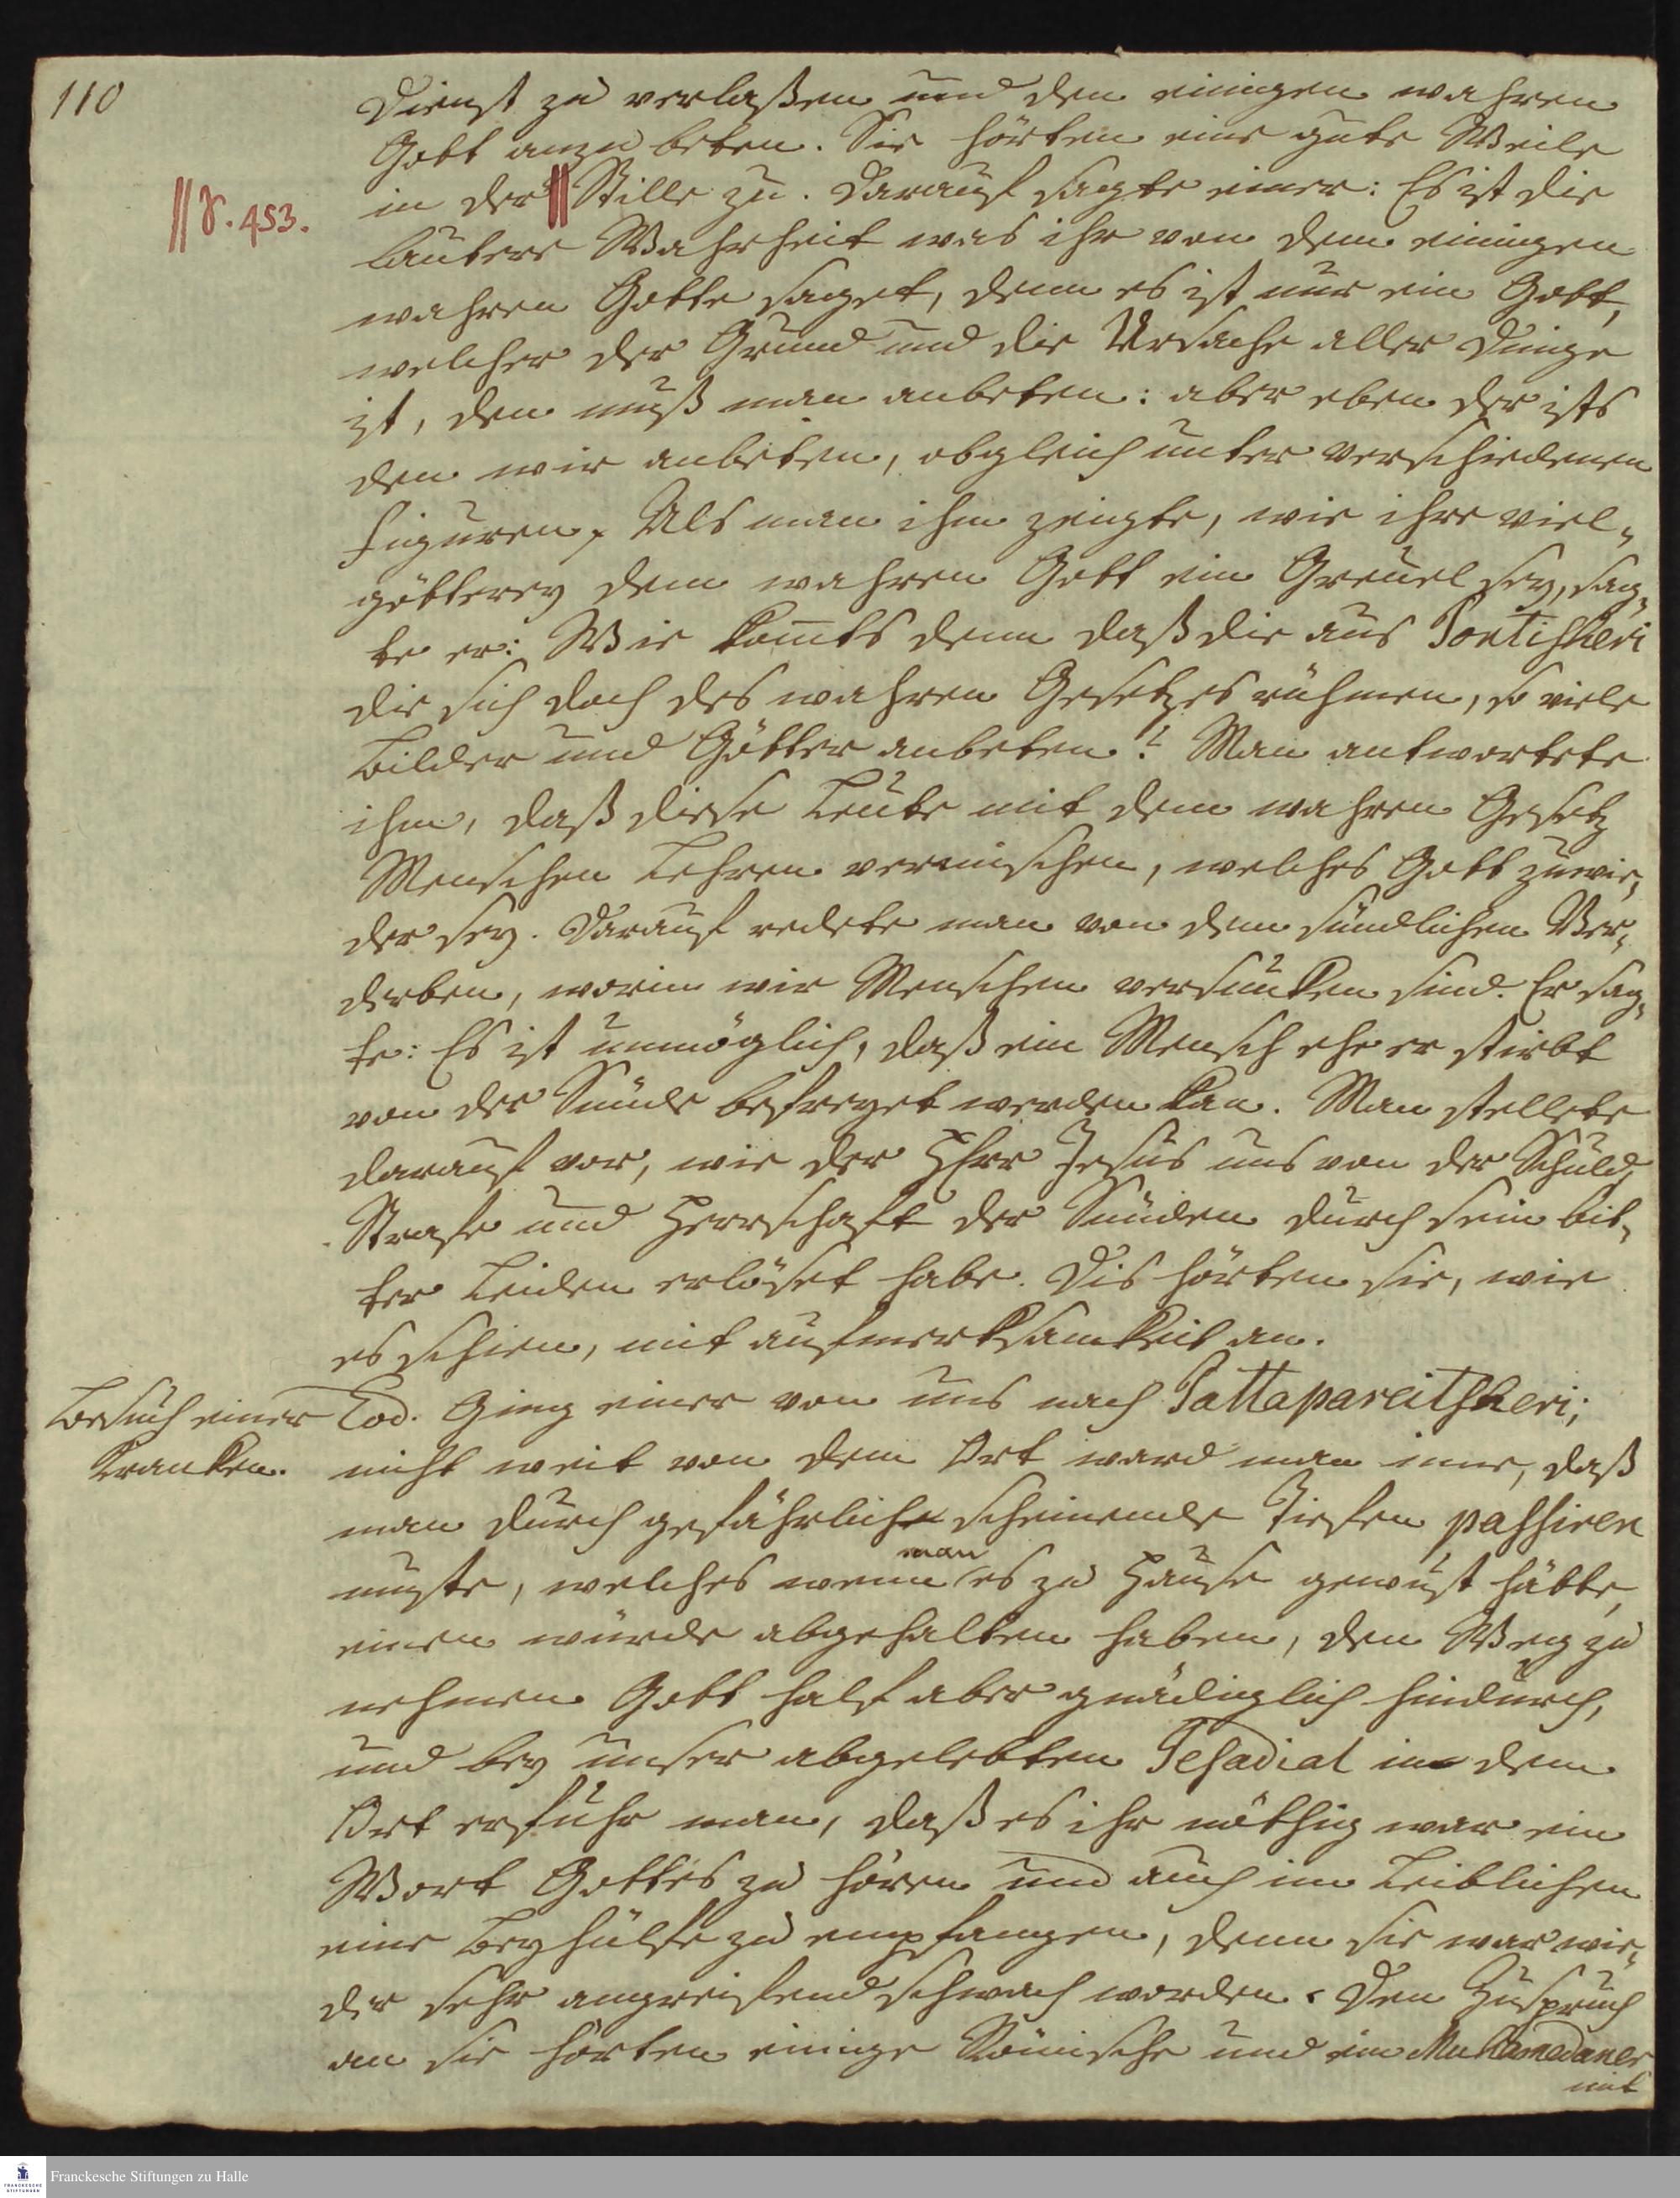 110
Dienst zu verlaßen und den einigen wahren
Gott anzu beten. Sie hörten eine gute Weile
in der || Stille zu. Darauf sagte einer: Es ist die
|| γ. 453.
lautere Wahrheit was ihr von dem einigen
wahren Gotte saget, denn es ist nur ein Gott,
welcher der Grund und die Ursache aller Dinge
ist, den muß man anbeten: aber eben der ists
den wir anbeten, obgleich unter verschiedenen
Figuren. Als man ihm zeigte, wie ihre viel-
götterey dem wahren Gott ein Greuel sey, sag-
te er: Wie kom̄ts denn daß die aus Pontischeri
die sich doch des wahren Gesetzes rühmen, so viele
Bilder und Götter anbeten? Man antwortete
ihm, daß diese Leute mit dem wahren Gesetz
Menschen Lehren vermischen, welches Gott zuwie-
der sey. Darauf redete man von dem sündlichen Ver-
derben, worin wir Menschen versunken sind. Er sag-
te: Es ist unmöglich, daß ein Mensch ehe er stirbt
von der Sünde befreyet werden kan. Man stellete
darauf vor, wie der HErr Jesus uns von der Schuld,
Strafe und Herrschaft der Sünden durch sein bit-
ter Leiden erlöset habe. Dis hörten sie, wie
es schien, mit aufmerksamkeit an.
Besuch einer
Kranken.
Eod. Ging einer von uns nach Pattapareitscheri;
nicht weit von dem Ort ward man inne, daß
man durch gefährlich scheinende Tiefen passiren
muste, welches wenn man es zu Hause gewust hätte,
einen würde abgehalten haben, den Weg zu
nehmen. Gott half aber gnädiglich hindurch,
und bey unser abgelebten Tesadial in dem
Ort erfuhr man, daß es ihr nöthig war ein
Wort Gottes zu hören und auch im Leiblichen
eine Beyhülfe zu empfangen, denn sie war wie-
der sehr angreifend schwach worden. Den Zuspruch
an sie hörten einige Römische und ein Muhamedaner
mit
Franckesche Stiftungen zu Halle
FRANCKESCHE STIFTUNGEN